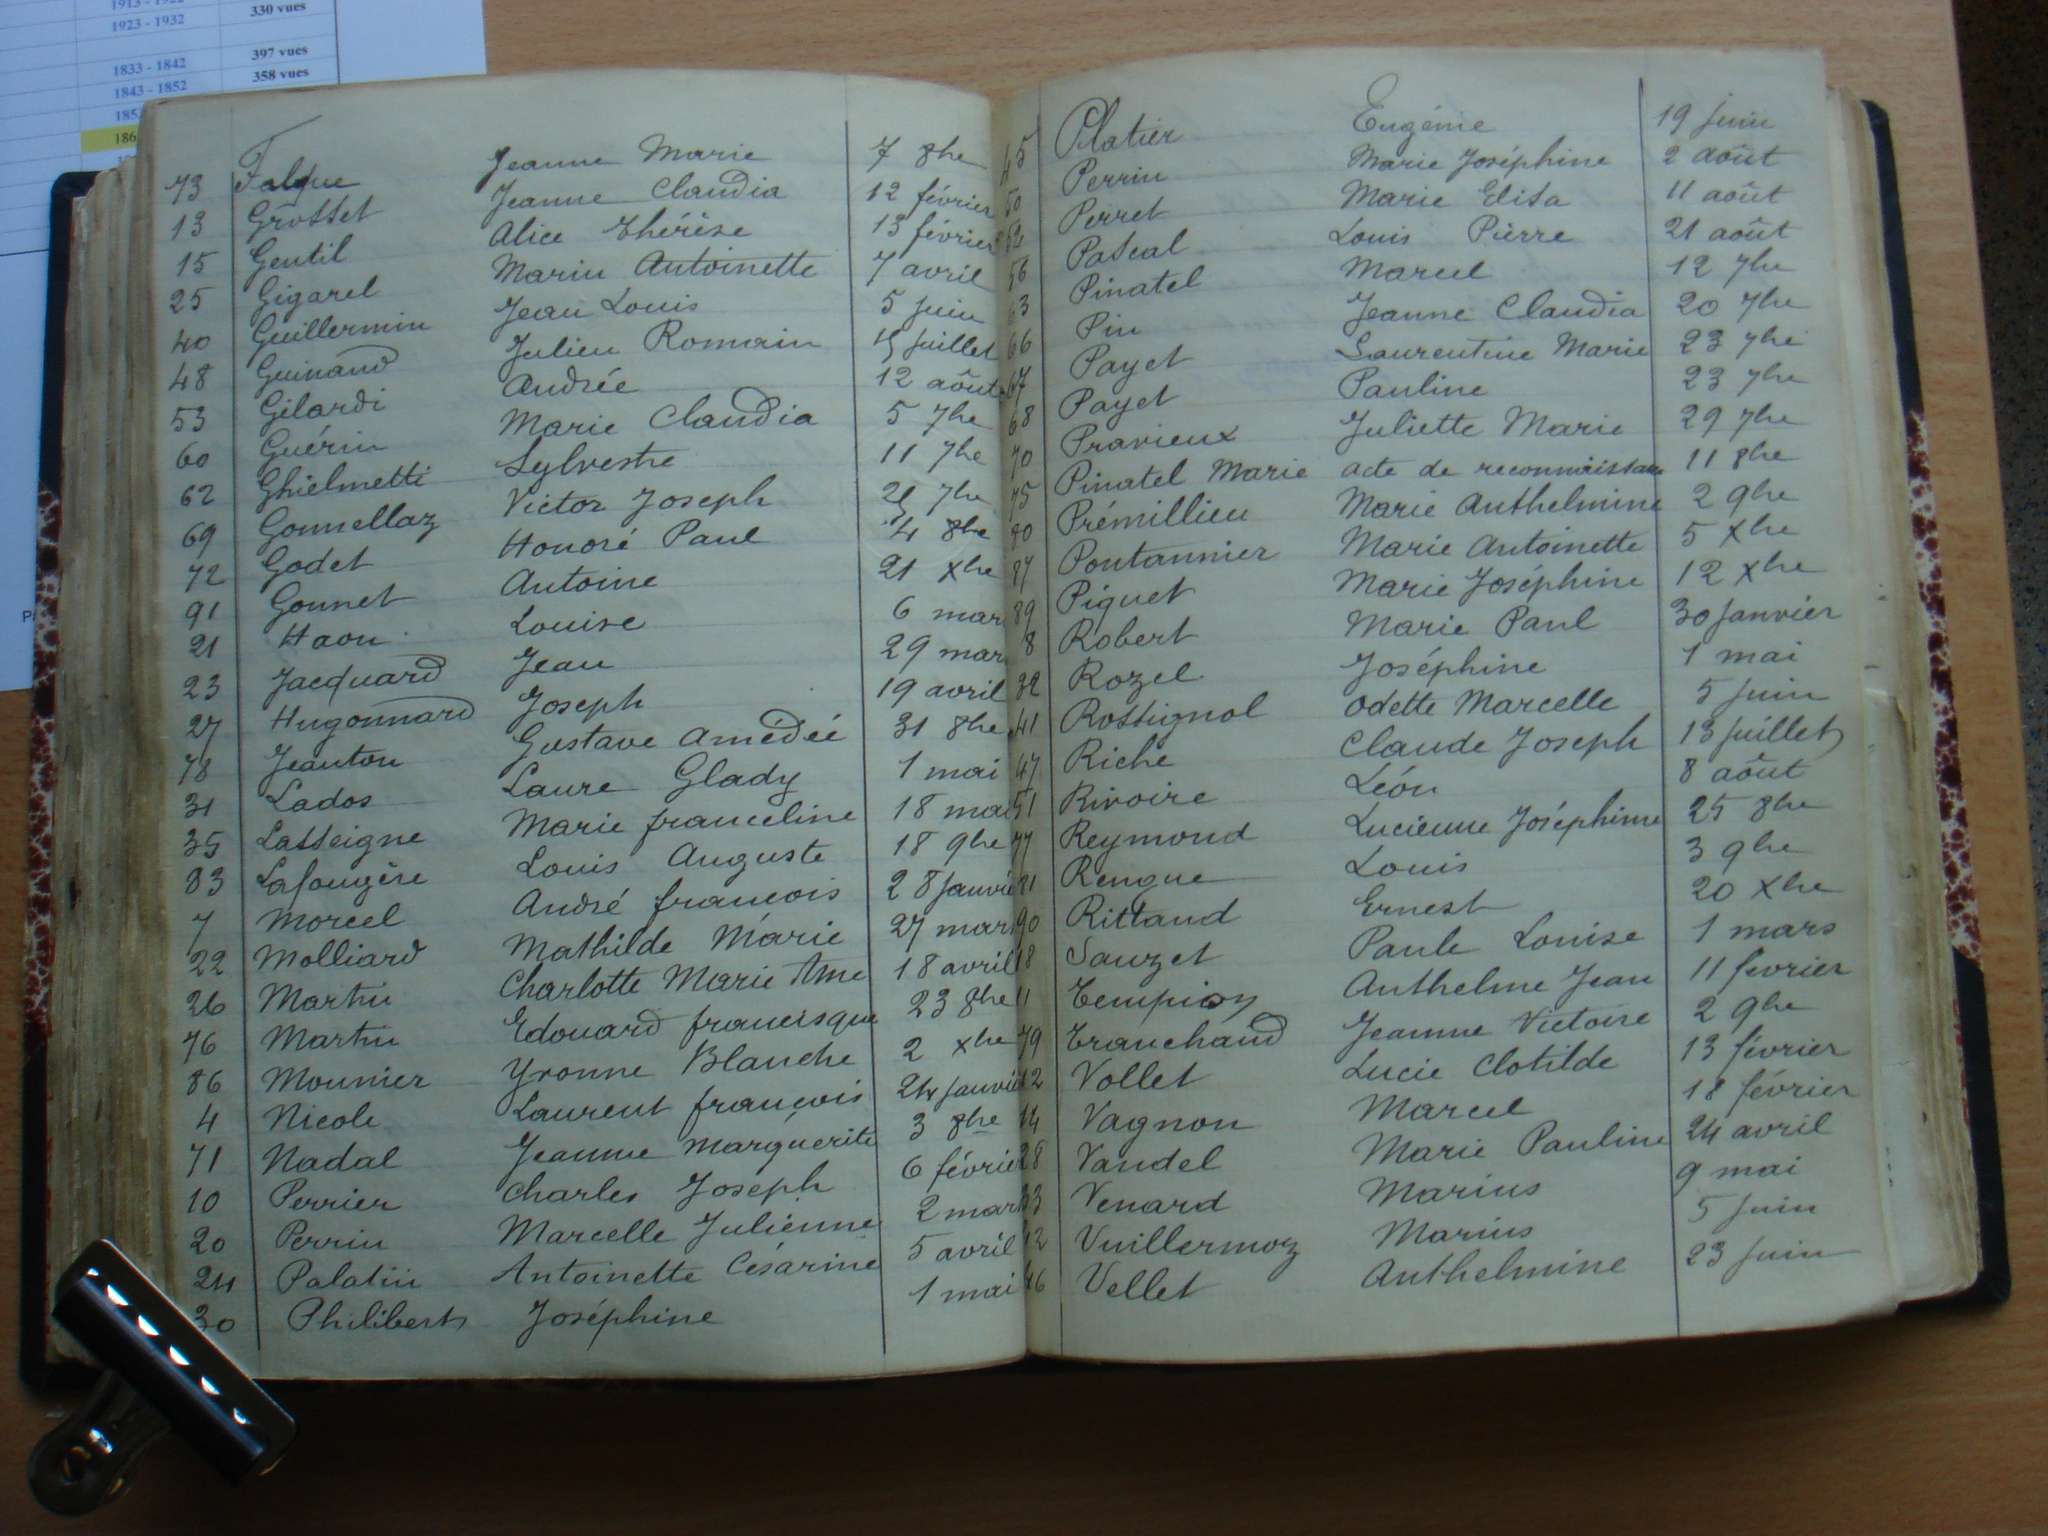 1913 - 1922
1923 - 1932 330 vues
1833 - 1842 397 vues
1843 - 1852 358 vues
73 Falque Jeanne Marie 7 8bre
13 Grosset Jeanne Claudia 12 février
15 Gentil Alice Thérèse 13 février
25 Gigarel Mariu Antoinette 7 avril
40 Guillermin Jean Louis 5 juin
48 Guinand Julien Romain 15 juillet
53 Gilardi Andrée 12 août
60 Guérin Marie Claudia 5 7bre
62 Ghielmetti Sylvestre 11 7bre
69 Gonnellaz Victor Joseph 25 7bre
72 Godet Honoré Paul 4 8bre
91 Gonnet Antoine 21 xbre
21 Haou Louise 6 mar
23 Jacquard Jean 29 mar
27 Hugonnard Joseph 19 avril
78 Jeanton Gustave Amédéé 31 8bre
31 Lados Laure Glady 1 mai
35 Lasseigne Marie franceline 18 mai
83 Lafougère Louis Auguste 18 9bre
7 Morcel André francois 28 janvie
22 Molliard Mathilde Marie 27 mars
26 Martin Charlotte Marie Ame 18 avril
76 Martin Edouard francisque 23 8bre
86 Mounier Yvonne Blanche 2 xbre
4 Nicole Laurent françois 24 janvie
71 Nadal Jeanne Marguerite 3 8bre
10 Perrier Charles Joseph 6 février
20 Perrin Marcelle Julienne 2 mars
24 Palatin Antoinette Césarine 5 avril
30 Philibert Joséphine 1 mai
45 Platier Eugénie 19 juin
50 Perrin Marie Joséphine 2 août
52 Perret Marie Elisa 11 août
56 Pascal Louis Pierre 21 août
63 Pinatel Marcel 12 7bre
66 Pin Jeanne Claudia 20 7bre
67 Payet Laurentine Marie 23 7bre
68 Payet Pauline 23 7bre
70 Pravieux Juliette Marie 29 7bre
75 Pinatel Marie acte de reconnaissance 11 8bre
80 Prémillieu Marie Anthelmine 2 9bre
87 Pontannier Marie Antoinette 5 xbre
89 Piquet Marie Joséphine 12 xbre
8 Robert Marie Paul 30 janvier
32 Rozel Joséphine 1 mai
41 Rossignol Odette Marcelle 5 juin
47 Riche Claude Joseph 13 juillet
51 Rivoire Léon 8 août
77 Reymond Lucienne Joséphine 25 8bre
81 Rengue Louis 3 9bre
90 Rittaud Ernest 20 xbre
18 Sauzet Paule Louise 1 mars
11 Tempion Anthelme Jean 11 fevrier
79 Tranchand Jeanne Victoire 2 9bre
12 Vollet Lucie Clotilde 13 février
14 Vagnon Marcel 18 février
28 Vandel Marie Pauline 24 avril
33 Venard Marius 9 mai
42 Vuillermoz Marius 5 juin
46 Vellet Anthelmine 23 juin